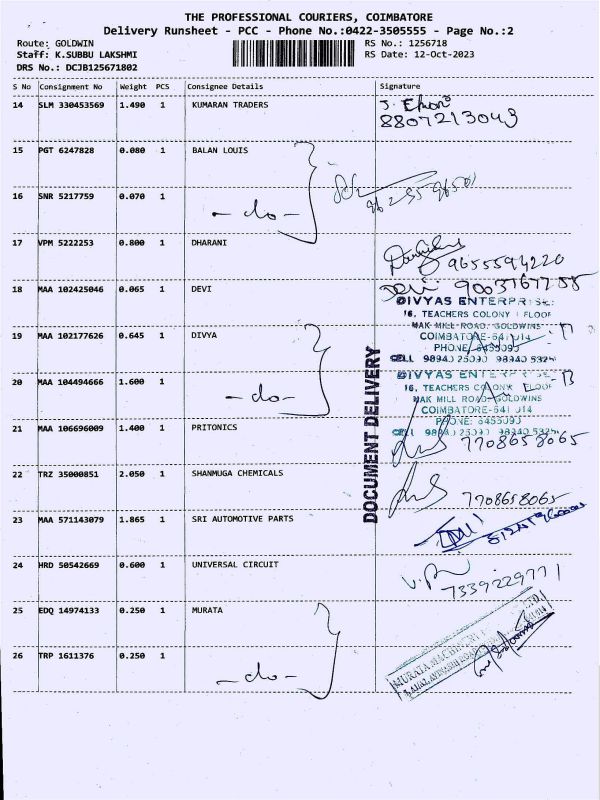 THE PROFESSIONAL COURIERS, COIMBATORE
Delivery Runsheet - PCC - Phone No.:0422-3505555 - Page No.:2
Route: GOLDWIN RS No.: 1256718
Staff: K.SUBBU LAKSHMI RS Date: 12-Oct-2023
DRS No.: DCJB125671802
S No Consignment No Weight PCS Consignee Details Signature
14 SLM 330453569 1.490 1 KUMARAN TRADERS
8807213043
15 PGT 6247828 0.080 1 BALAN LOUIS
16 SNR 5217759 0.070 1 -do-
17 VPM 5222253 0.800 1 DHARANI
9655594220
18 MAA 102425046 0.065 1 DEVI Devi
DIVYAS ENTERPRISE
16, TEACHERS COLONY I FLOOR
MAK MILL ROAD, GOLDWINS
19 MAA 102177626 0.645 1 DIVYA COIMBATORE-641 014
PHONE: 6455093
CELL 98940 25090 98940 5329
DOCUMENT DELIVERY
DIVYAS ENTERPRISE
20 MAA 104494666 1.600 1 -do- 16, TEACHERS COLONY FLOOR
MAK MILL ROAD-GOLDWINS
COIMBATORE-641 014
PHONE: 6455093
21 MAA 106696009 1.400 1 PRITONICS
7708658065
22 TRZ 35000851 2.050 1 SHANMUGA CHEMICALS
7708658065
23 MAA 571143079 1.865 1 SRI AUTOMOTIVE PARTS
24 HRD 50542669 0.600 1 UNIVERSAL CIRCUIT
7339229771
25 EDQ 14974133 0.250 1 MURATA
MURATA MACHINERY
26 TRP 1611376 0.250 1 -do-